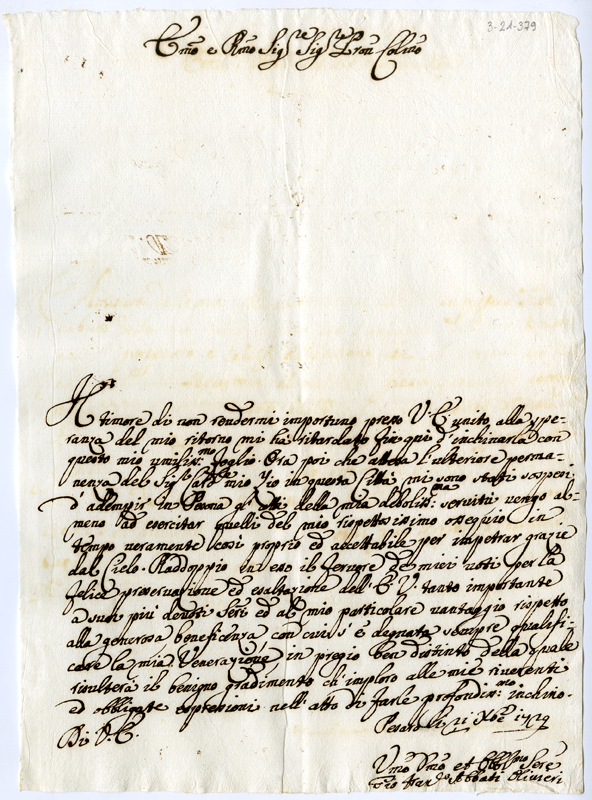 3-21-379
Emo e Rmo Sigre Sigre Pron Colmo
Il timore di non rendermi importuno presso V. E. unito alla spe-
ranza del mio ritorno mi ha ritardato fin qui d'inchinarla con
questo mio umilissmo foglio. Ora poi che attesa l'ulteriore perma-
nenza del Sigr Card.le mio Zio in questa Città mi sono stati sospesi
d'adempir in Persona gl'atti della mia debolissma servitù vengo al-
meno ad esercitar quelli del mio rispettosissimo ossequio in
tempo veramente così proprio ed accettabile per impetrar grazie
dal Cielo. Raddoppio in esso il fervore de miei voti per la
felice preservazione ed esaltazione dell'E. V. tanto importante
a suoi più devoti Seri ed al mio particolare vantaggio rispetto
alla generosa beneficenza con cui s'è degnata sempre qualifi-
care la mia Venerazione in pregio ben distinto della quale
risulterà il benigno gradimento ch'imploro alle mie riverenti
ed obbligate espressioni nell'atto di farle profondissmo inchino.
Pesaro li 11 Xbre 1729
Di V. E.
Umo Dmo et Obblmo Sere
Abbati Olivieri